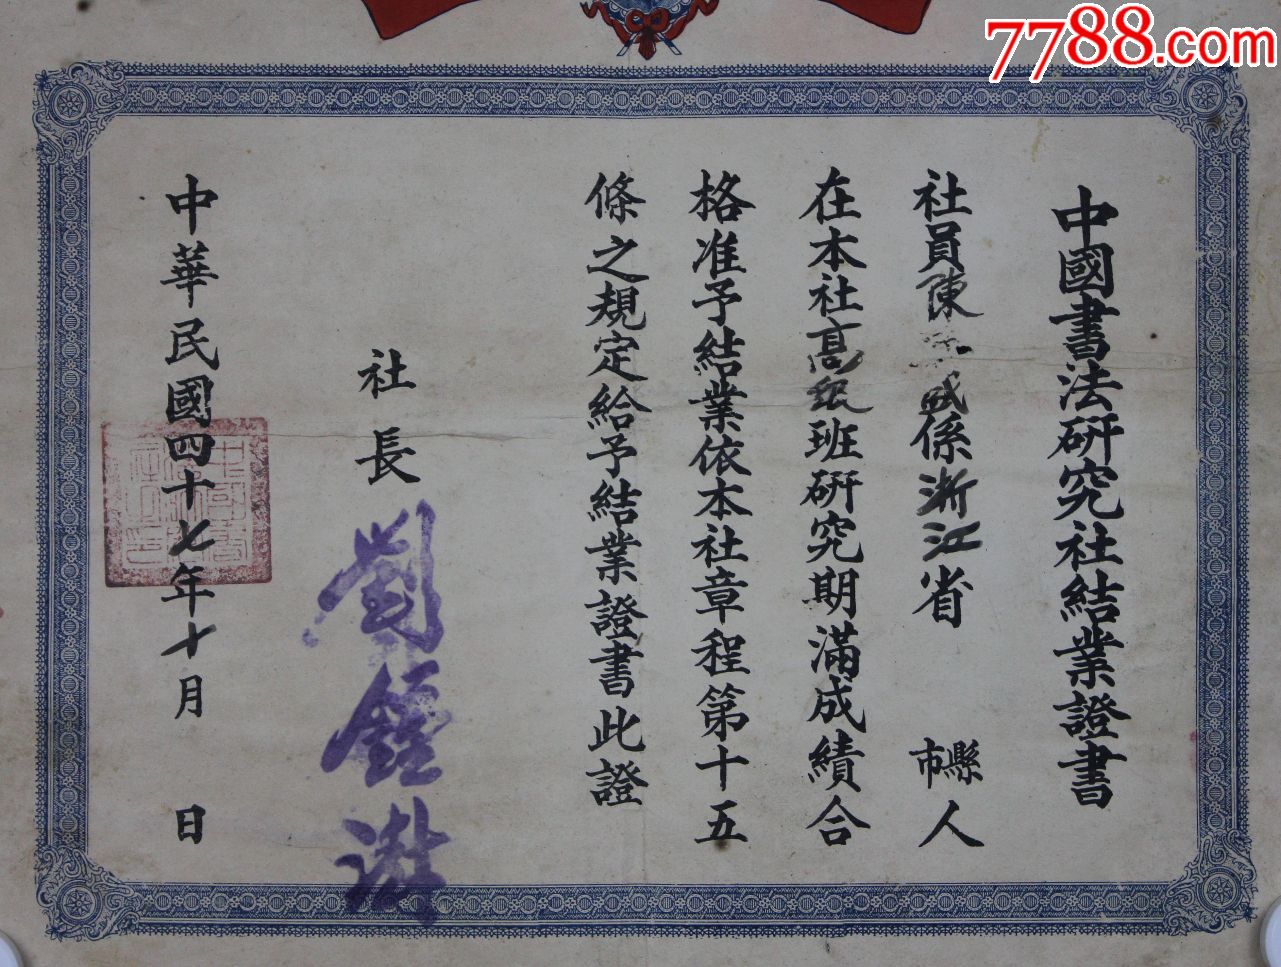 7788.com
中國書法研究社結業證書
社員陳 成係浙江省 縣市人
在本社高級班研究期滿成績合
格准予結業依本社章程第十五
條之規定給予結業證書此證
社長
劉
中華民國四十七年十月 日